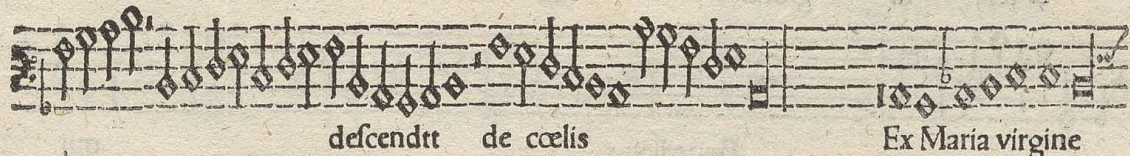 deſcendtt de cœlis Ex Maria virgine